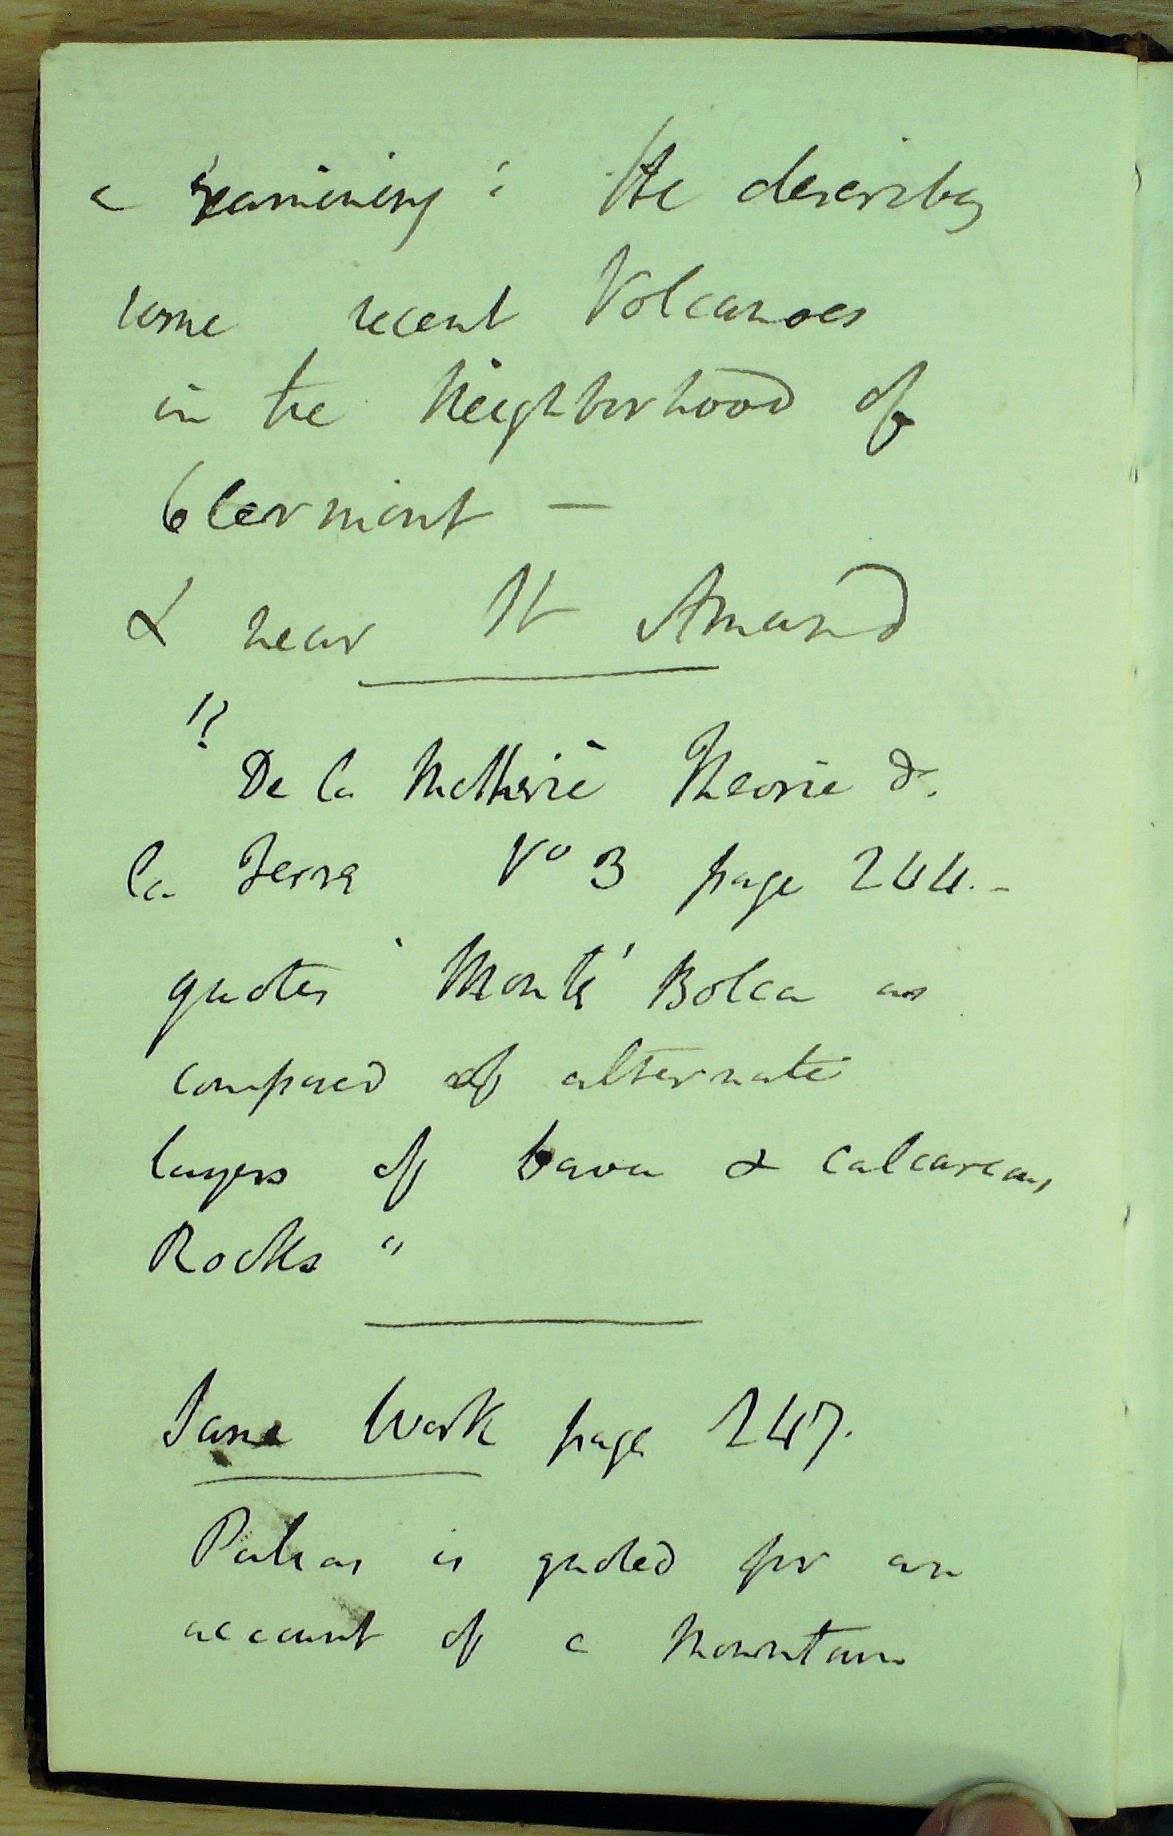 a examining: He describes
some recent Volcanoes
in the Neighborhood of
Clermont —
& near St Amand
!?
De la Metherie Theorie de
la Terre Vo 3 page 244. -
quotes Monte Bolca as
composed of alternate
layers of Lava & calcareous
Rocks "
Same Work page 247.
Pallas is quoted for an
account of a Mountain